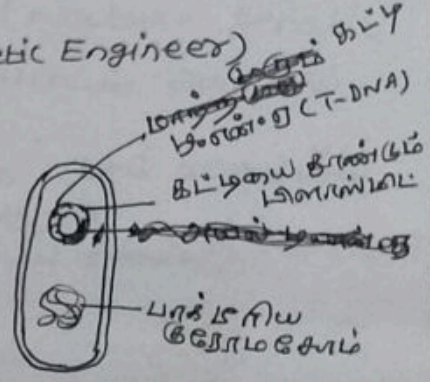 etic Engineer)
கட்டி
டி.என்.ஏ (T-DNA)
கட்டியை தூண்டும்
பிளாஸ்மிட்
பாக்டீரிய
குரோமசோம்